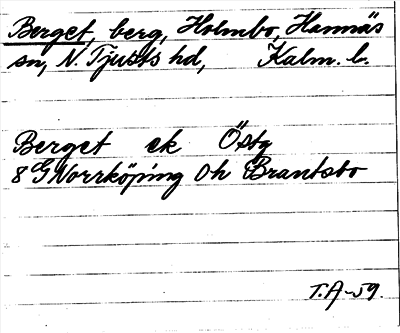 Berget, berg, Holmbo, Hannäs
sn, N. Tjusts hd, Kalm. l.
Berget ek Östg
8 G Norrköping 0h Brantsbo
T.A-59.